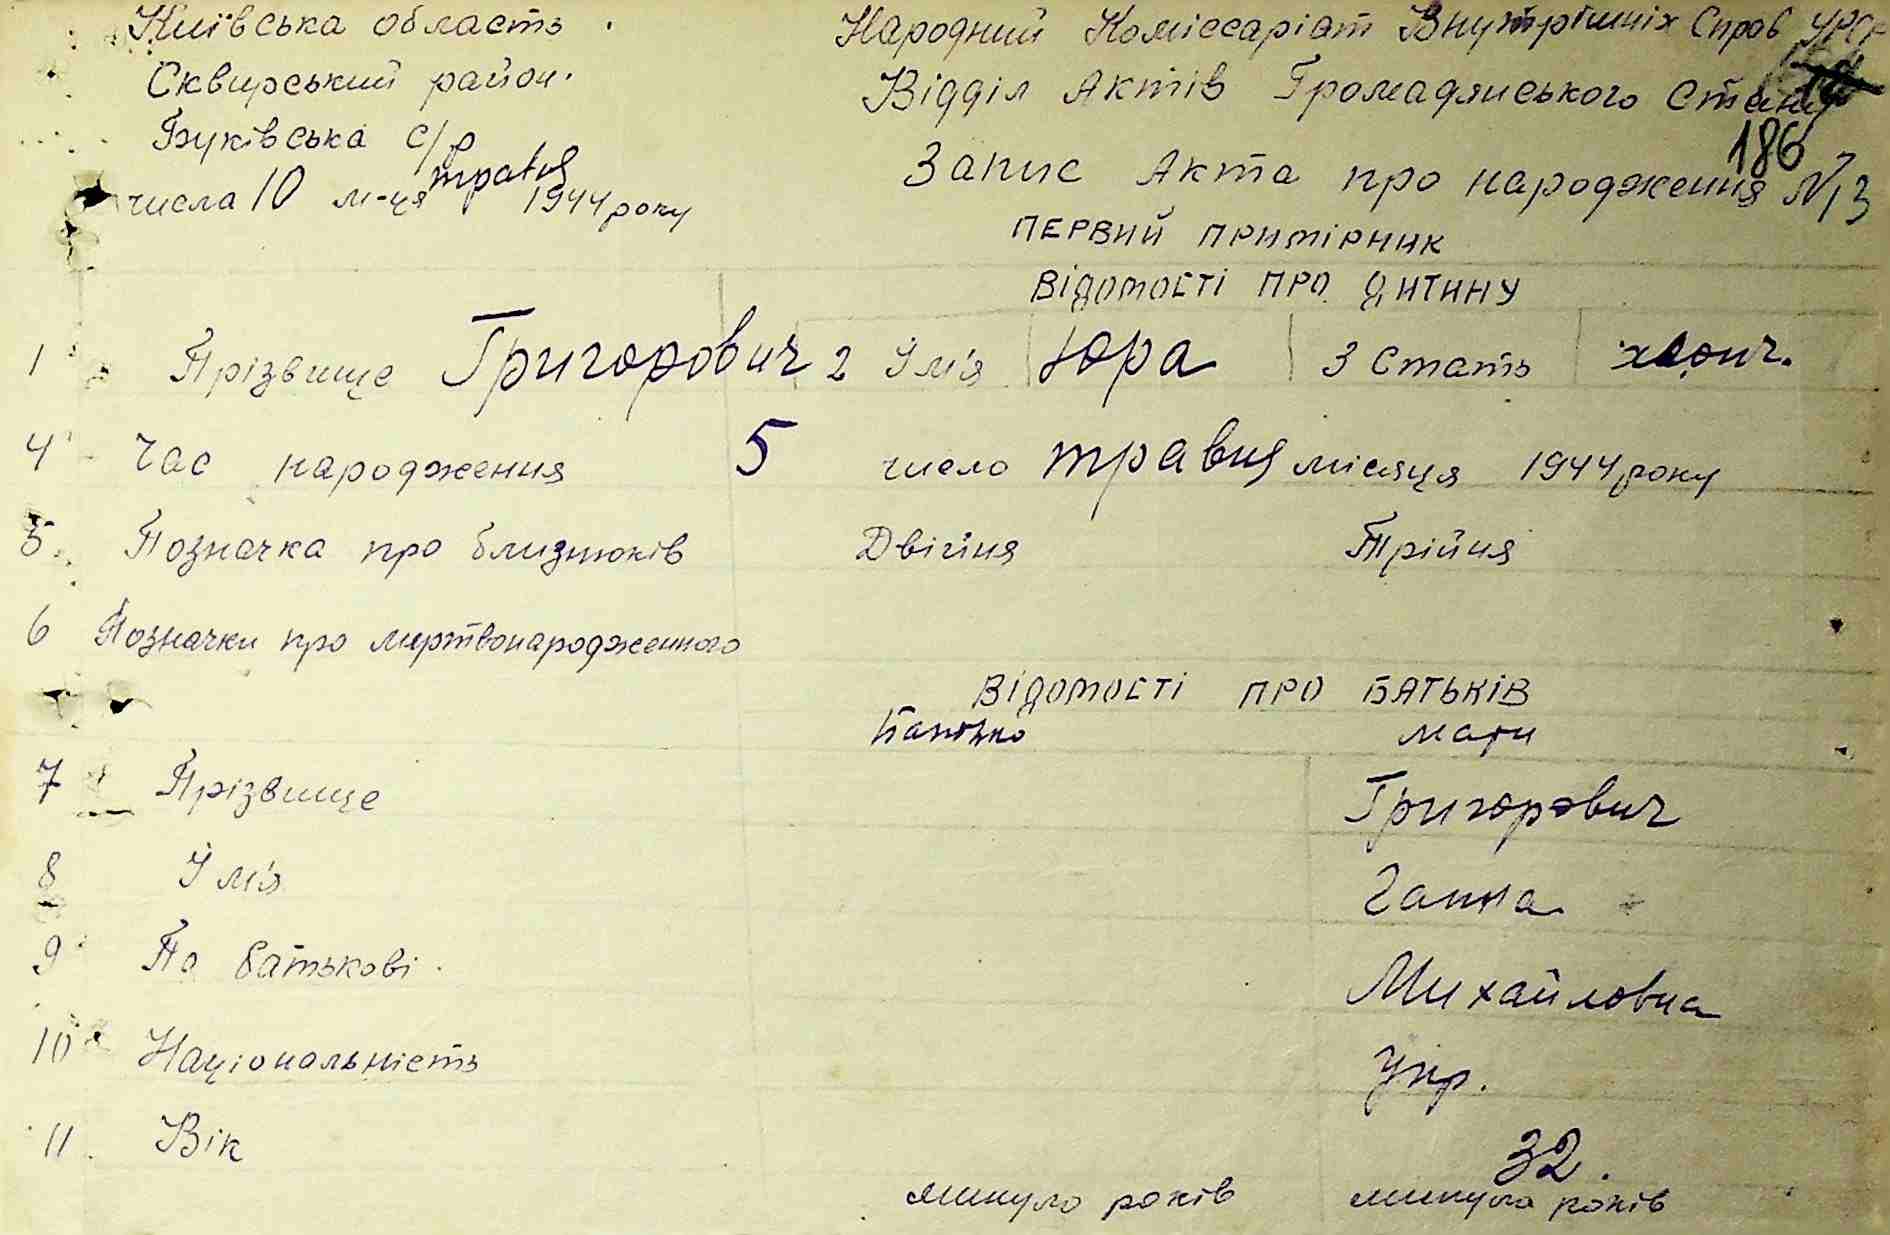 Київська область.
Народний Коміссаріат Внутрішніх Справ УРСР
Сквирський район.
Відділ Актів Громадянського Стану
Буківська с/р
186
числа 10 м-ця травня 1944 року
Запис Акта про народження N 13
ПЕРВИЙ ПРИМІРНИК
ВІДОМОСТІ ПРО ДИТИНУ
1 Прізвище Григорович 2 Імʼя Юра 3 Стать хлопч.
4 Час народження 5 число травня місяця 1944 року
5. Позначка про близнюків Двійня Трійня
6 Позначки про мертвонародженного
ВІДОМОСТІ ПРО БАТЬКІВ
Батько мати
7 Прізвище Григорович
8 Імʼя Ганна
9 По батькові. Михайловна
10 Національність Укр.
11. Вік 32.
минуло років минуло років